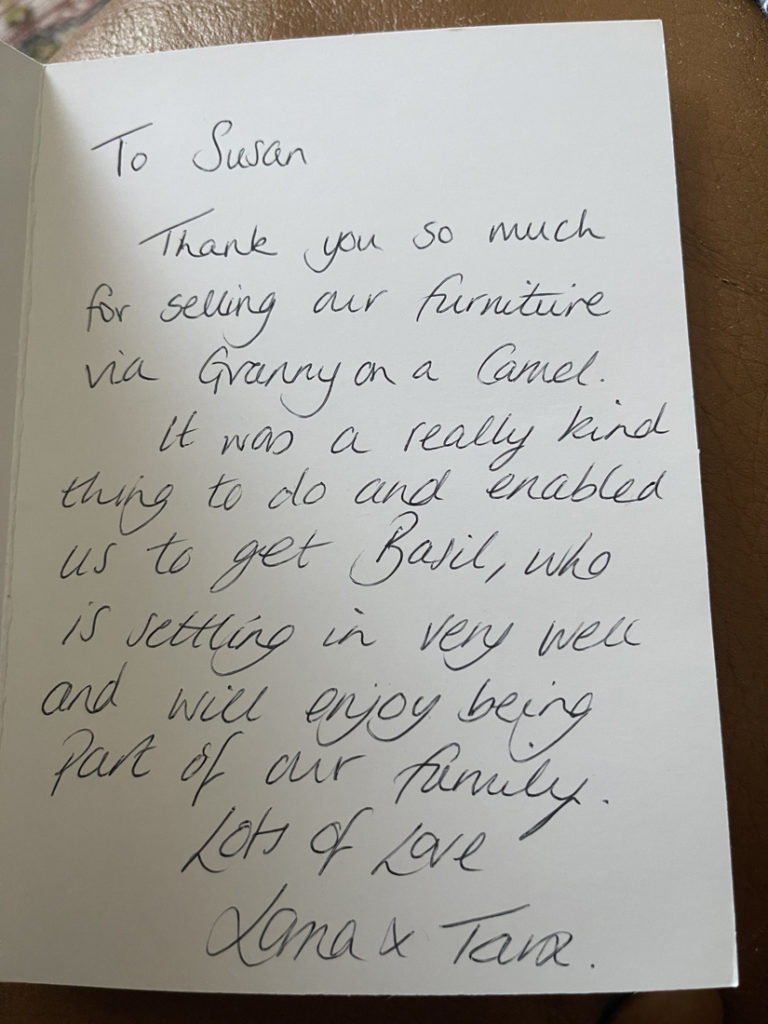 To Susan
Thank you so much
for selling our furniture
via Granny on a Camel.
It was a really kind
thing to do and enabled
us to get Basil, who
is settling in very well
and will enjoy being
Part of our family.
Lots of Love
Lana & Tara.